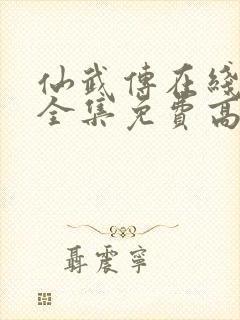 仙武傳在綫
全集免費高
聶震寧